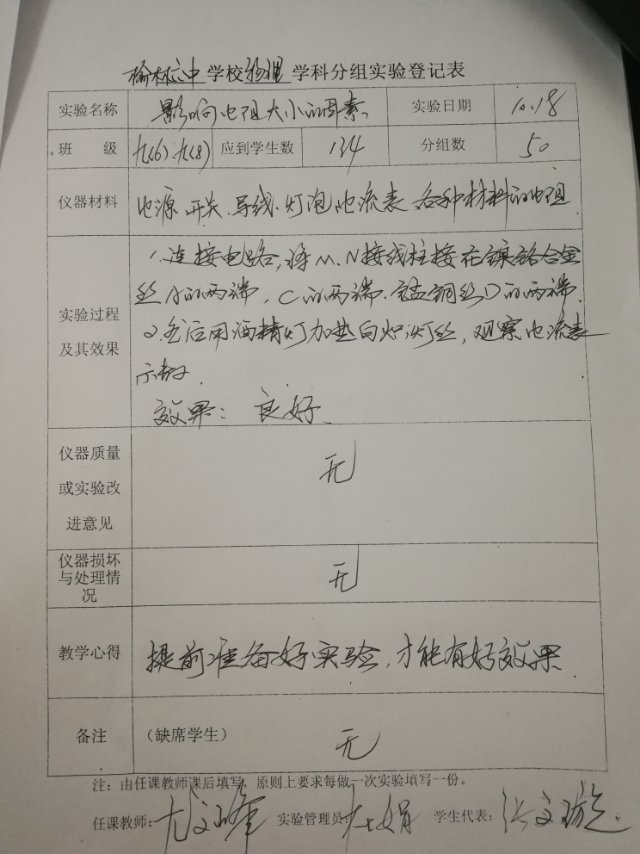 榆林六中学校物理学科分组实验登记表
实验名称 影响电阻大小的因素 实验日期 10.18
班 级 九(6).九(8) 应到学生数 134 分组数 50
仪器材料 电源 开关.导线.灯泡 电流表 各种材料的电阻
实验过程
及其效果
1.连接电路,将M.N接线柱接在镍铬合金
丝A的两端,C的两端.锰铜丝D的两端.
2.先后用酒精灯加热白炽灯丝,观察电流表
示数.
效果:良好.
仪器质量
或实验改
进意见
无
仪器损坏
与处理情
况
无
教学心得 提前准备好实验,才能有好效果
备注 (缺席学生) 无
注:由任课教师课后填写,原则上要求每做一次实验填写一份。
任课教师: 实验管理员: 学生代表: